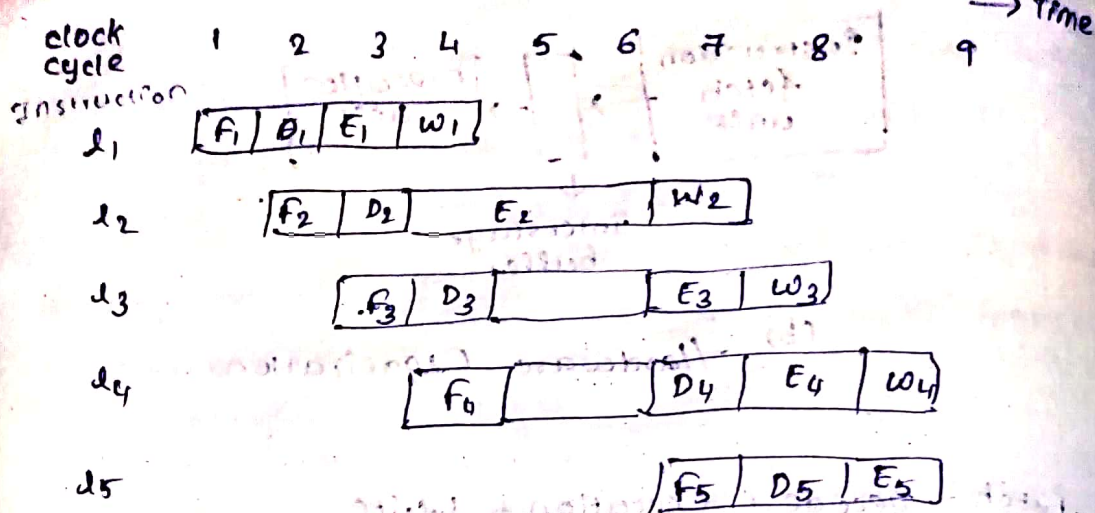 → Time
clock cycle 1 2 3 4 5 6 7 8 9
Instruction
I1 F1 D1 E1 W1
I2 F2 D2 E2 W2
I3 F3 D3 E3 W3
I4 F4 D4 E4 W4
I5 F5 D5 E5